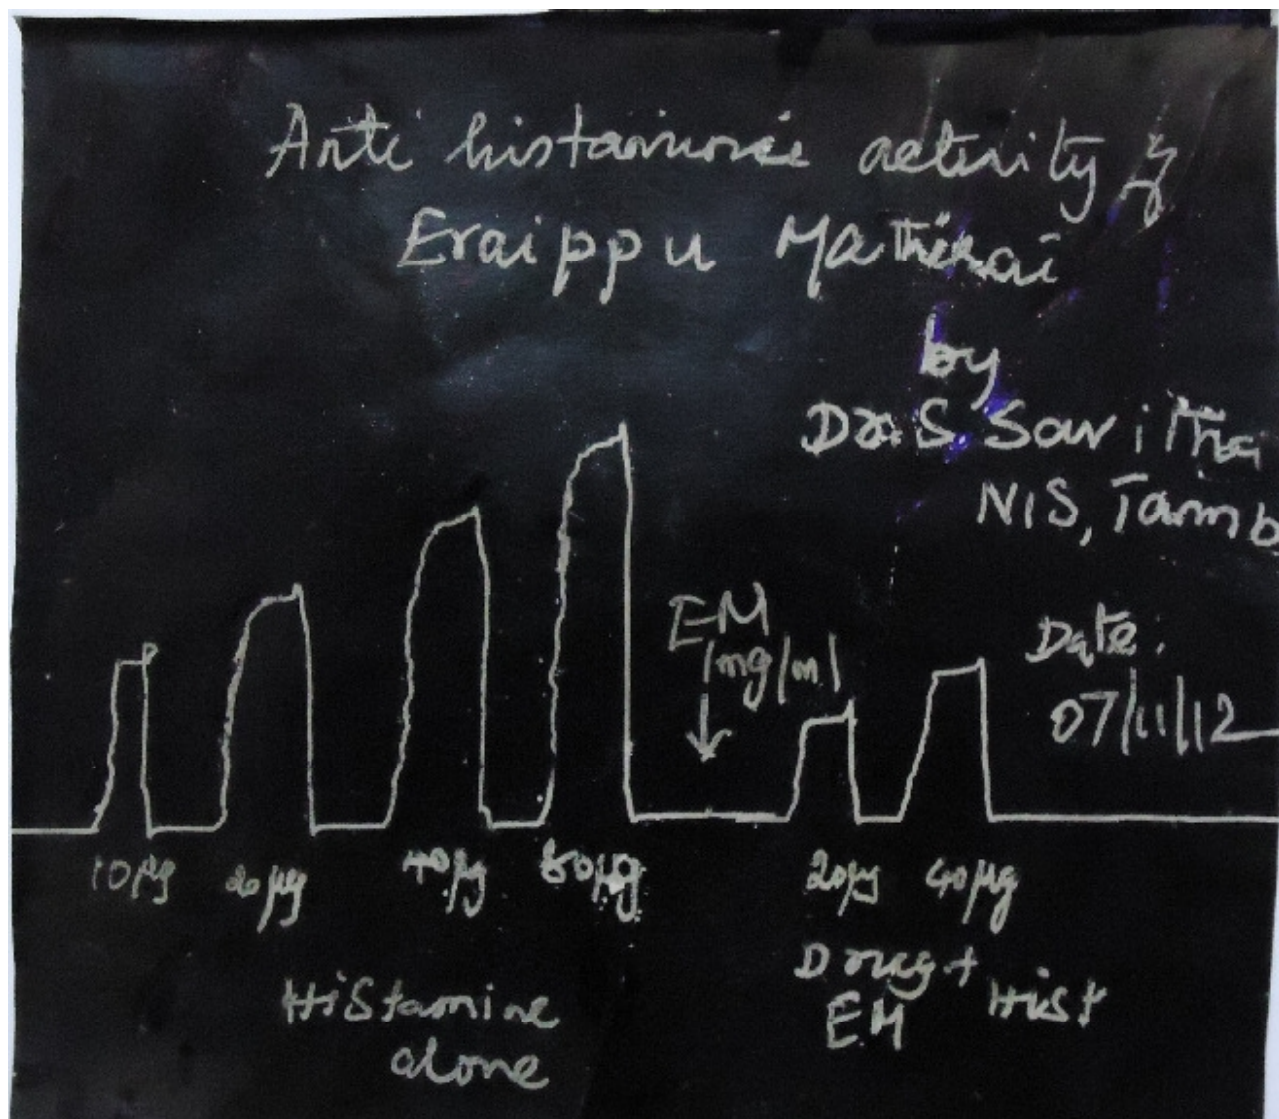 Anti histaminic activity of
Eraippu Mathirai
by
Dr. S. Savitha
NIS, Tamb
EM
1mg/ml
Date:
07/11/12
10µg 20µg 40µg 80µg 20µg 40µg
Histamine
alone
Drug + Hist
EM